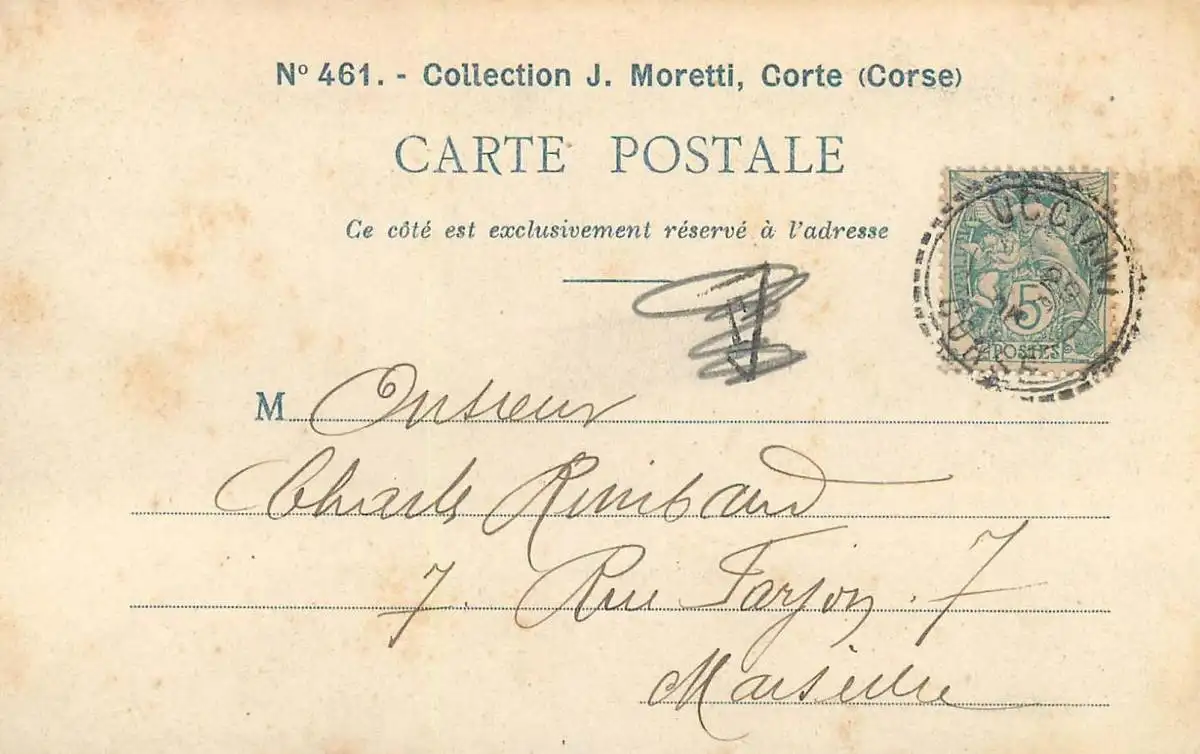 Nº 461. - Collection J. Moretti, Corte (Corse)
CARTE POSTALE
Ce côté est exclusivement réservé à l'adresse
UCCIANI
CORSE
5
POSTES
Monsieur
Charles Rimbaud
7. Rue Farjon. 7
Marseille